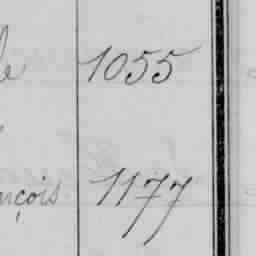 le 1055
nçois 1177